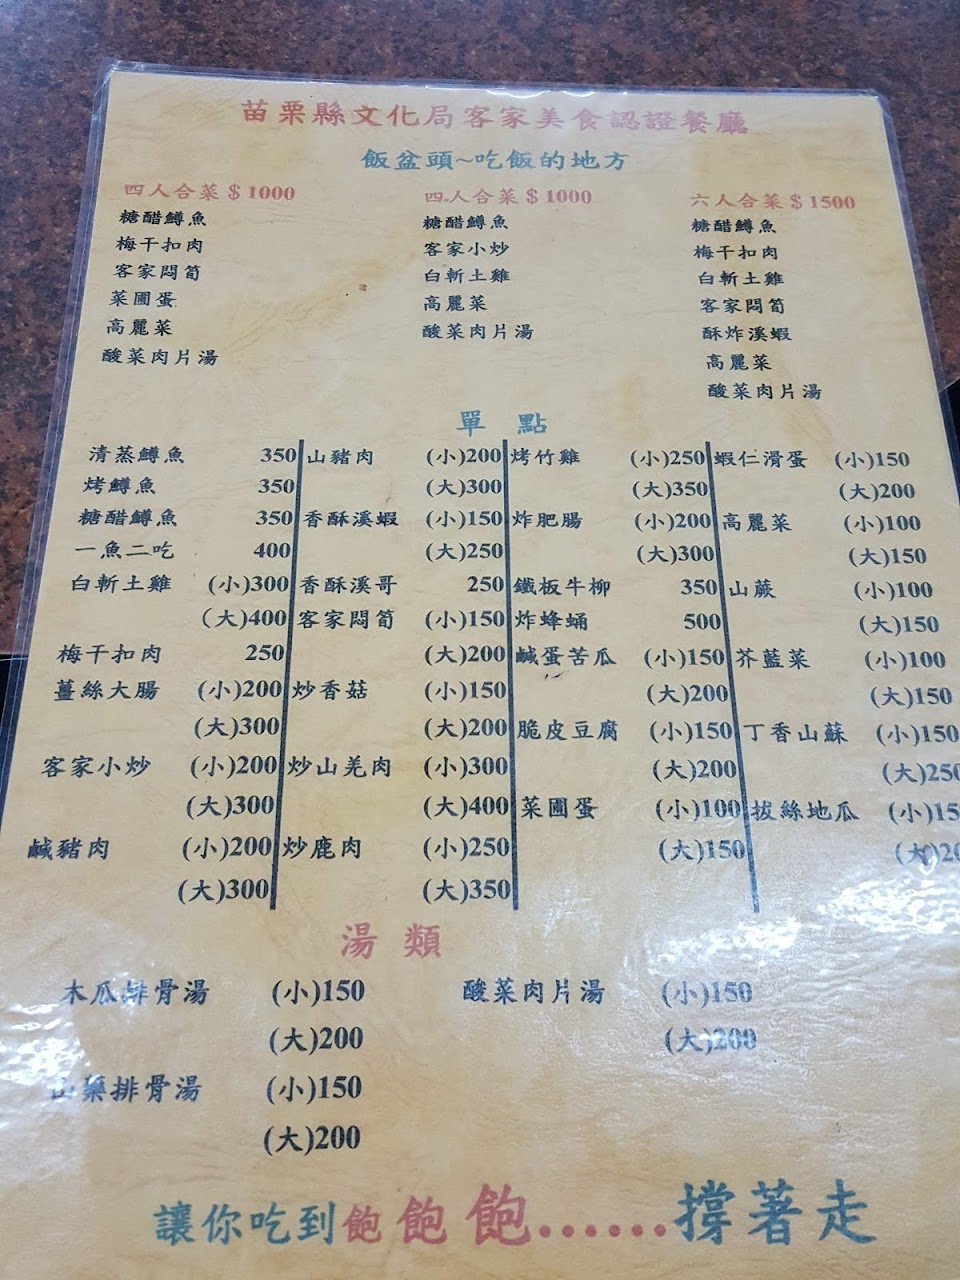 苗栗縣文化局客家美食認證餐廳
飯盆頭~吃飯的地方
四人合菜$1000
糖醋鱒魚
梅干扣肉
客家悶筍
菜圃蛋
高麗菜
酸菜肉片湯
四人合菜$1000
糖醋鱒魚
客家小炒
白斬土雞
高麗菜
酸菜肉片湯
六人合菜$1500
糖醋鱒魚
梅干扣肉
白斬土雞
客家悶筍
酥炸溪蝦
高麗菜
酸菜肉片湯
單 點
清蒸鱒魚 350
烤鱒魚 350
糖醋鱒魚 350
一魚二吃 400
白斬土雞 (小)300
(大)400
梅干扣肉 250
薑絲大腸 (小)200
(大)300
客家小炒 (小)200
(大)300
鹹豬肉 (小)200
(大)300
山豬肉 (小)200
(大)300
香酥溪蝦 (小)150
(大)250
香酥溪哥 250
客家悶筍 (小)150
(大)200
炒香菇 (小)150
(大)200
炒山羌肉 (小)300
(大)400
炒鹿肉 (小)250
(大)350
烤竹雞 (小)250
(大)350
炸肥腸 (小)200
(大)300
鐵板牛柳 350
炸蜂蛹 500
鹹蛋苦瓜 (小)150
(大)200
脆皮豆腐 (小)150
(大)200
菜圃蛋 (小)100
(大)150
蝦仁滑蛋 (小)150
(大)200
高麗菜 (小)100
(大)150
山蕨 (小)100
(大)150
芥藍菜 (小)100
(大)150
丁香山蘇 (小)150
(大)250
拔絲地瓜 (小)15
(大)20
湯 類
木瓜排骨湯 (小)150
(大)200
山藥排骨湯 (小)150
(大)200
酸菜肉片湯 (小)150
(大)200
讓你吃到飽飽飽......撐著走